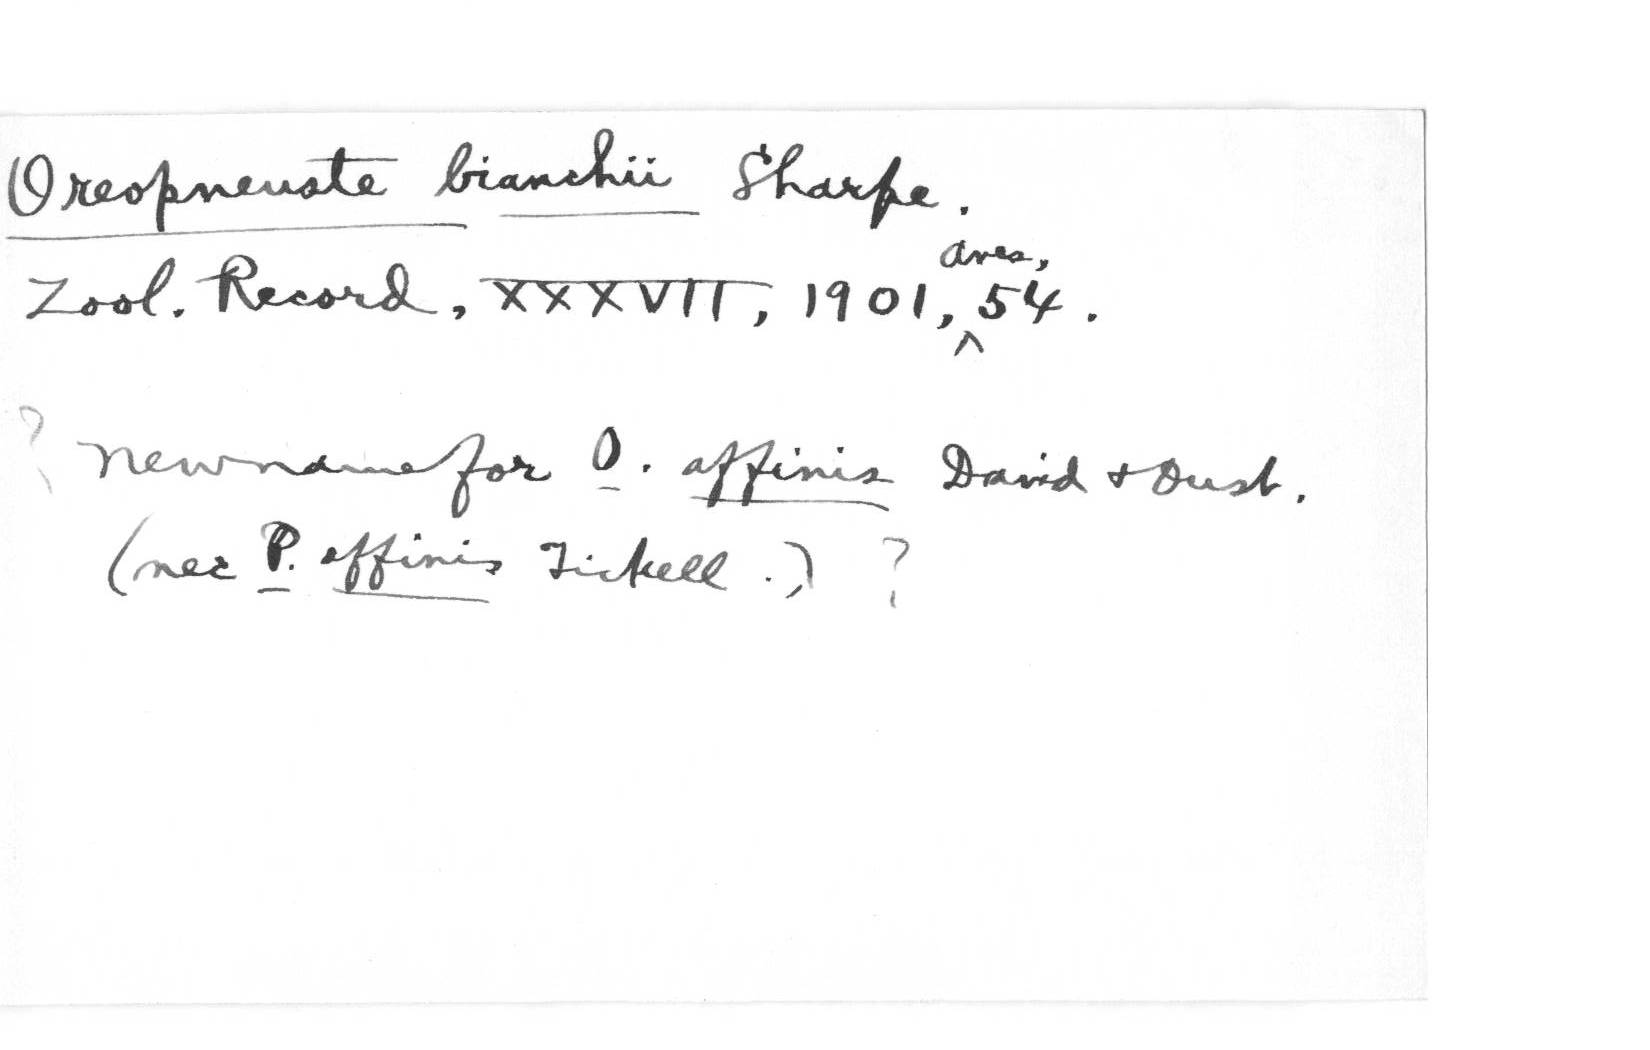 Oreopneuste bianchii Sharpe.
Zool. Record, XXXVII, 1901, Aves, 54.
? New name for O. affinis David & Oust.
(nec P. affinis Tickell.) ?